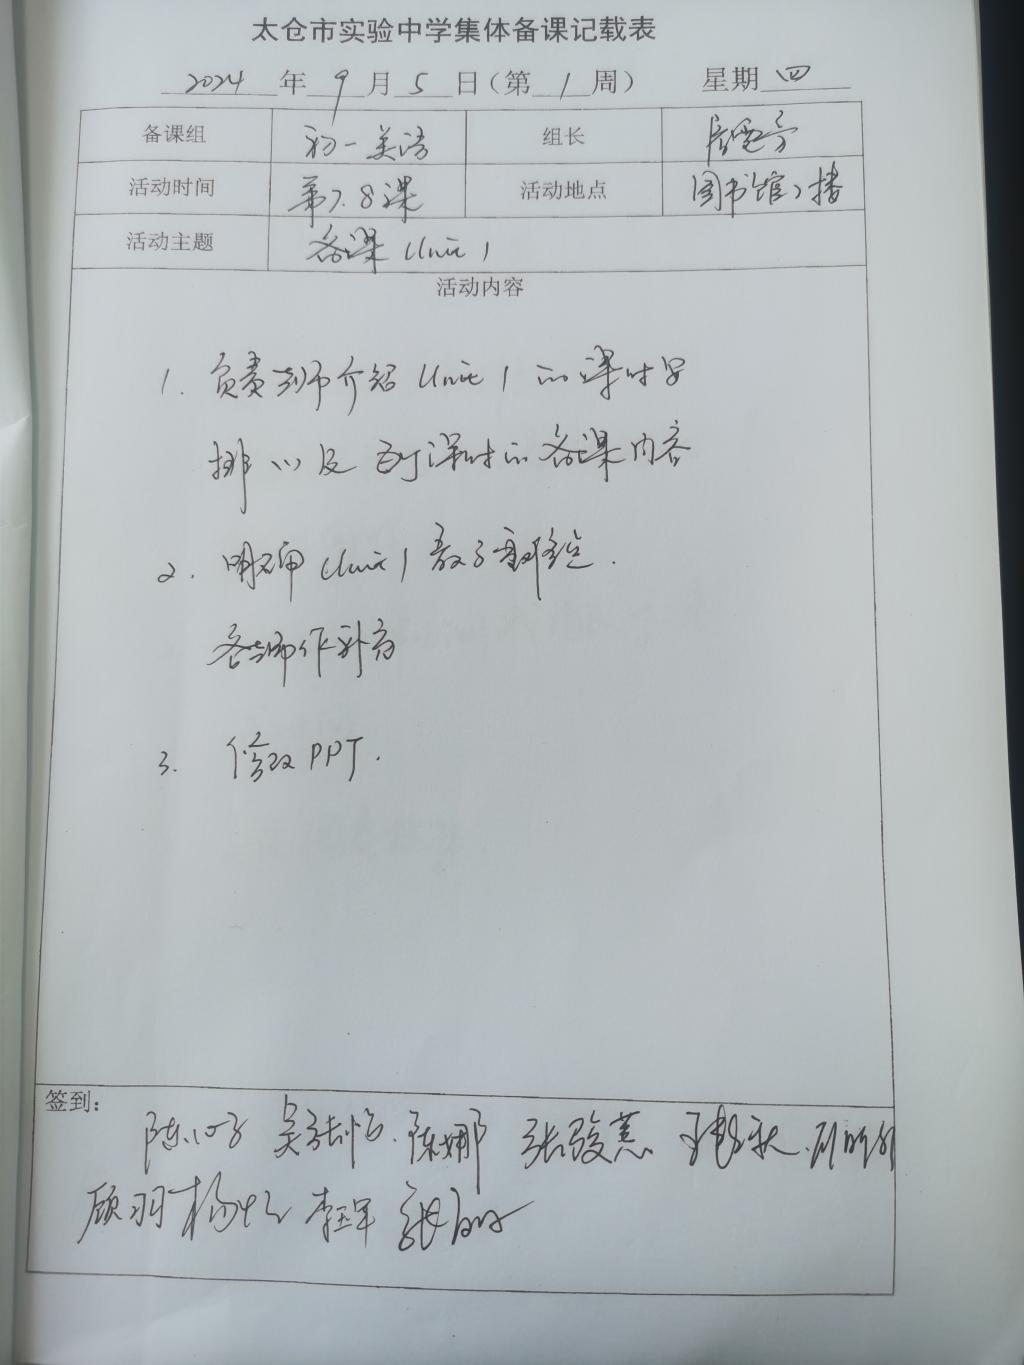 太仓市实验中学集体备课记载表
2024 年 9 月 5 日（第 1 周） 星期 四
备课组 初一英语 组长
活动时间 第7.8课 活动地点 图书馆2楼
活动主题 备课 Unit 1
活动内容
1. 负责教师介绍 Unit 1 的课时安
排以及每课时的备课内容
2. 明确 Unit 1 教学重难点.
各教师作补充
3. 修改PPT.
签到：
陈 吴 陈娜 张骏慧 王 秋
顾羽 杨忆 李玉军 张